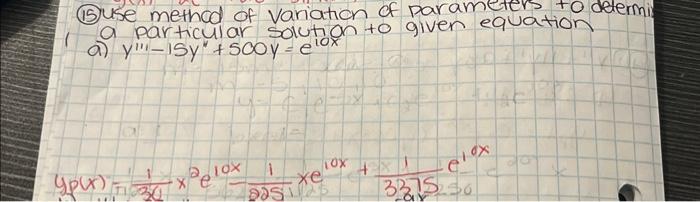 ⑮ use method of variation of parameters to determi
a particular solution to given equation
a) y''' - 15y'' + 500y = e^10x
yp(x) = 1/30 x^2 e^10x - 1/225 xe^10x + 1/3375 e^10x